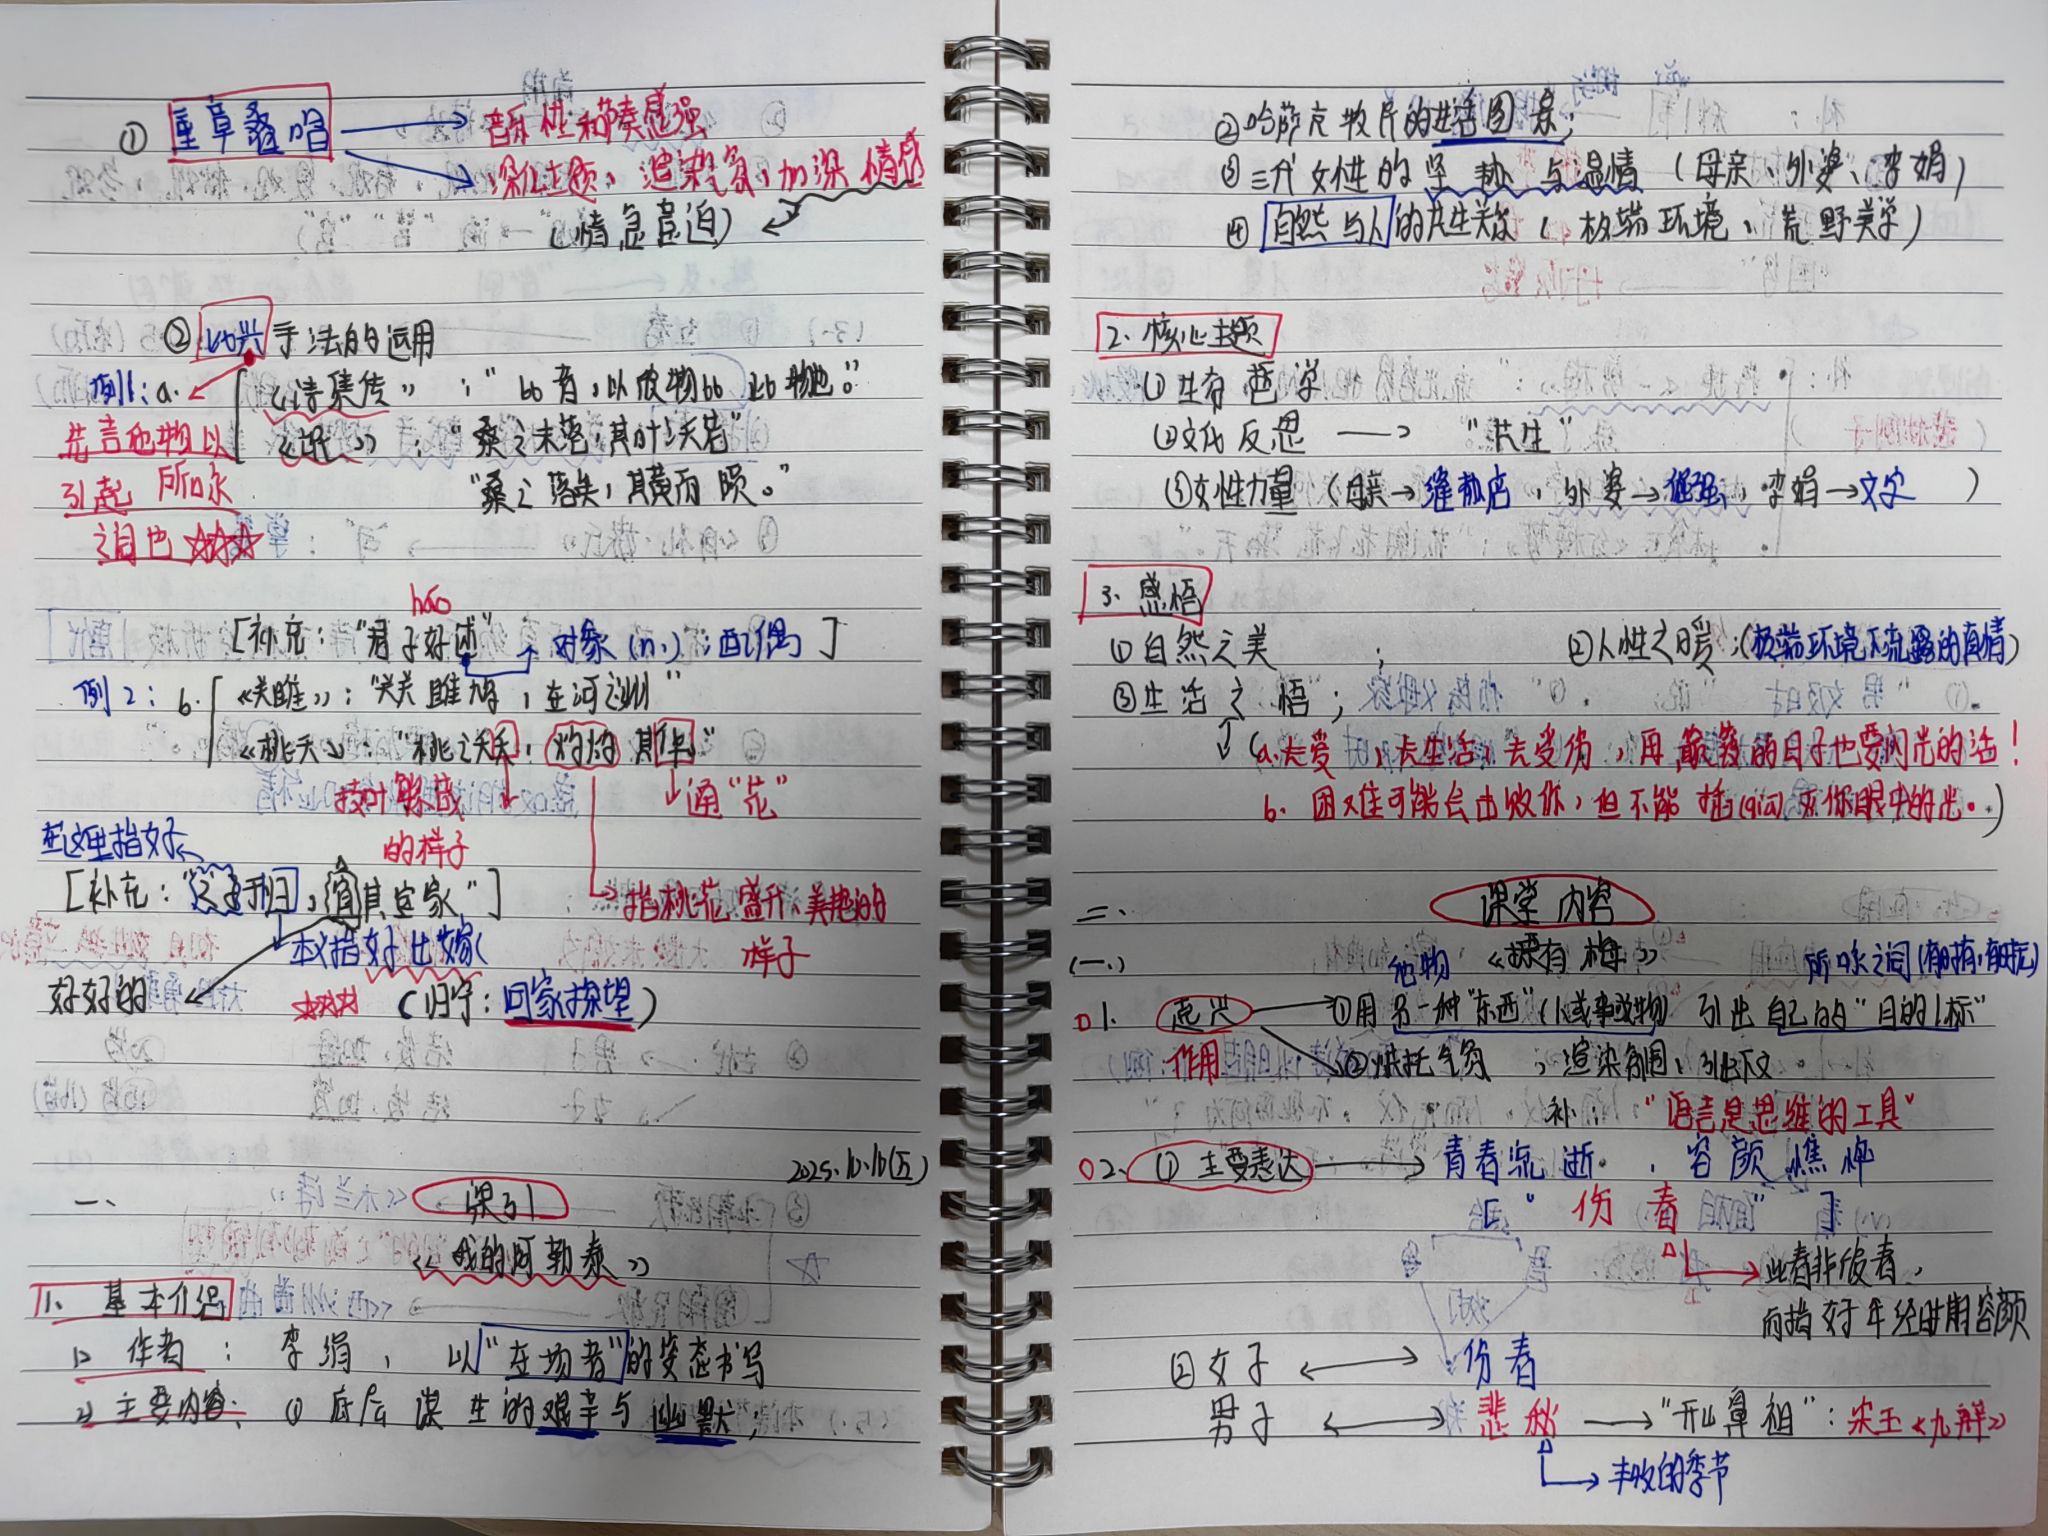 ① 重章叠唱 → 音乐性和节奏感强
→ 深化主题，渲染气氛，加深情感
（情急意迫）
② 比兴手法的运用
例1：a. 《诗集传》：“比者，以彼物比此物也。”
先言他物以
《氓》：“桑之未落，其叶沃若”
引起所咏
“桑之落矣，其黄而陨。”
之词也 ☆☆☆
hǎo
[补充：“君子好逑” → 对象（n.）：配偶]
例2：b. 《关雎》：“关关雎鸠，在河之洲”
《桃夭》：“桃之夭夭，灼灼其华”
枝叶繁茂
的样子
通“花”
在这里指女子
[补充：“之子于归，宜其室家”]
指桃花盛开、美艳的
样子
本义指女子出嫁
好好的
☆☆☆ （归宁：回家探望）
2025.10.10（五）
一、 课引
《我的阿勒泰》
1、基本介绍
1> 作者：李娟，以“在场者”的姿态书写
2> 主要内容：① 底层谋生的艰辛与幽默；
② 哈萨克牧民的生活图景；
③ 三代女性的坚韧与温情（母亲、外婆、李娟）
④ 自然与人的共生关系（极端环境，荒野美学）
2、核心主题
① 生存哲学
② 文化反思 → “共生”
③ 女性力量（母亲→缝纫店，外婆→倔强，李娟→文字）
3、感悟
① 自然之美； ② 人性之暖；（极端环境下流露的真情）
③ 生活之悟；
（a. 去爱，去生活，去受伤，再颠簸的日子也要闪光的活！
b. 困难可能会击败你，但不能打倒你眼中的光。）
二、 课堂内容
（一）《摽有梅》
他物
所咏之词（有时有，有时无）
01. 起兴 → ①用另一种“东西”（人或事或物）引出自己的“目的/目标”
作用 ②烘托气氛，渲染氛围，引出下文
补：“语言是思维的工具”
02. ① 主要表达 → 青春流逝，容颜憔悴
[“伤春”]
此春非彼春，
而指女子年轻时期容颜
② 女子 ↔ 伤春
男子 ↔ 悲秋 → “开山鼻祖”：宋玉《九辩》
丰收的季节